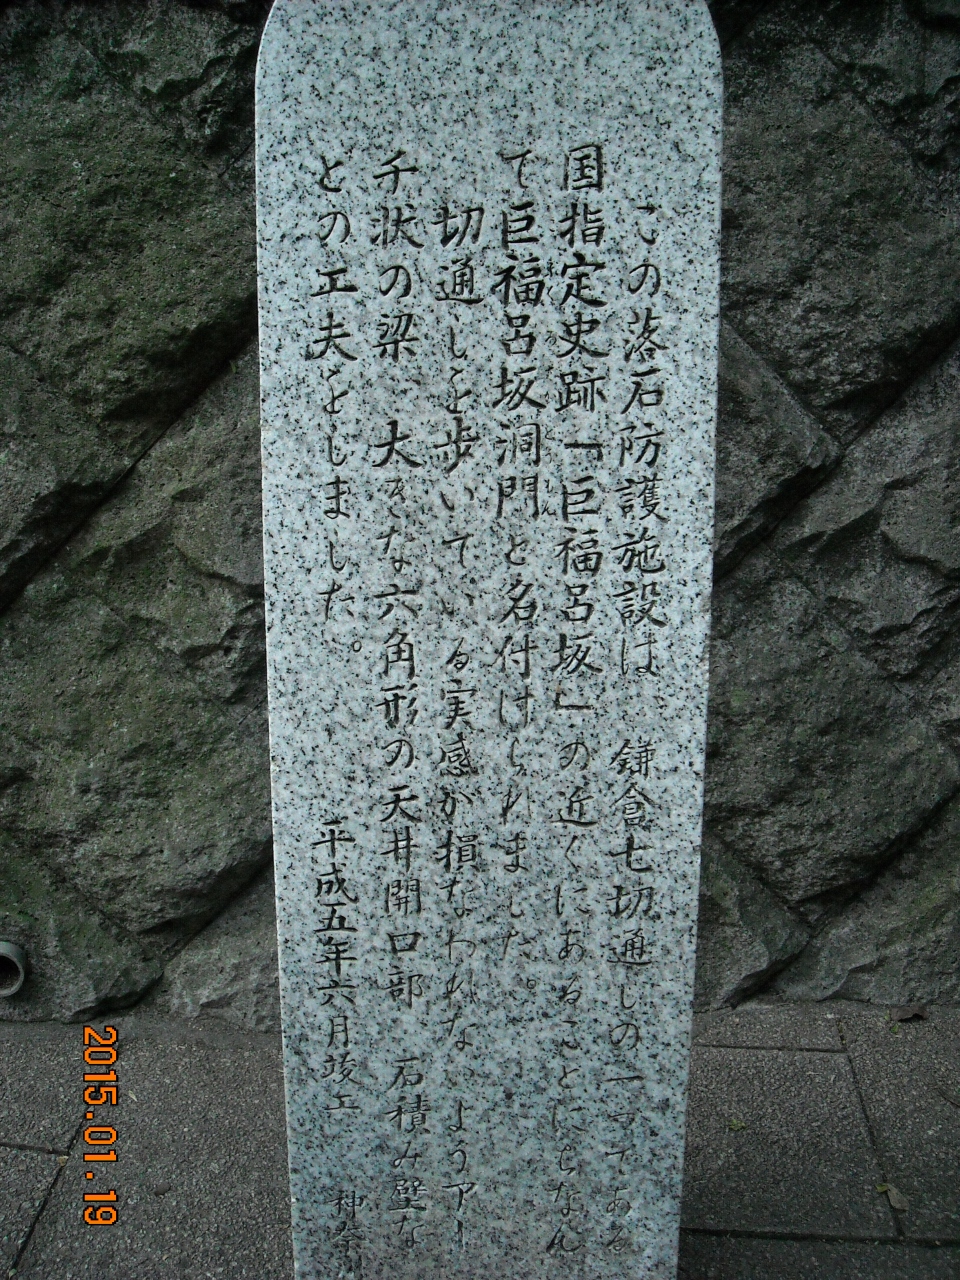 この落石防護施設は、鎌倉七切通しの一つである
国指定史跡「巨福呂坂」の近くにあることにちなん
で巨福呂坂洞門と名付けられました。
切通しを歩いている実感が損なわれないようアー
チ状の梁、大きな六角形の天井開口部、石積み壁な
どの工夫をしました。
平成五年六月竣工
神奈
2015.01.19